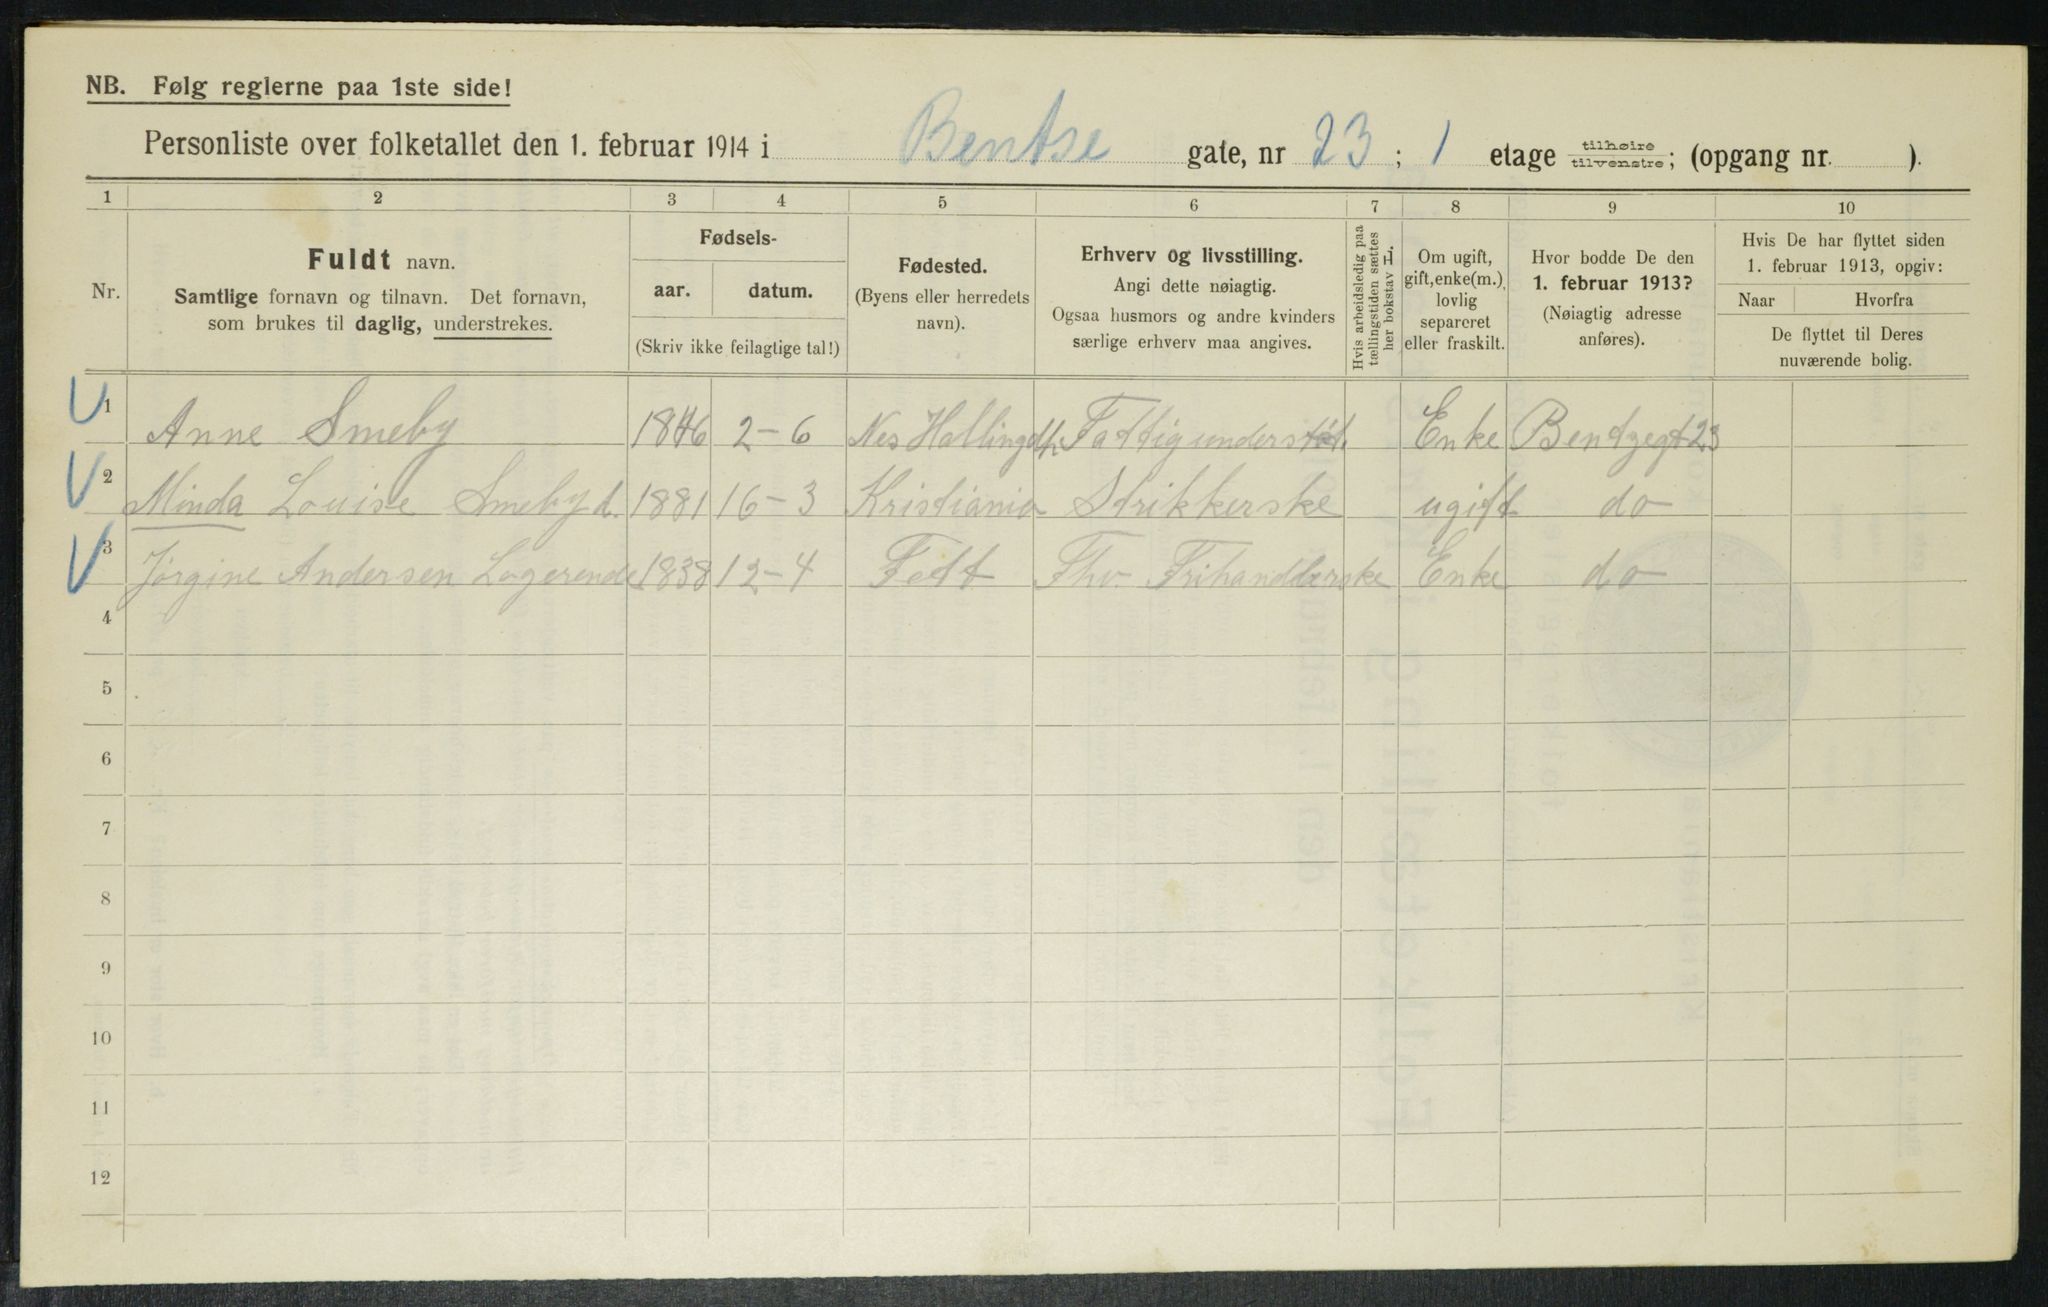 NB. Følg reglerne paa 1ste side!
Personliste over folketallet den 1. februar 1914 i Bentse gate, nr 23 ; 1 etage tilhøire tilvenstre ; (opgang nr. ).
1 2 3 4 5 6 7 8 9 10
Nr.
Fuldt navn.
Samtlige fornavn og tilnavn. Det fornavn,
som brukes til daglig, understrekes.
Fødsels-
aar. datum.
(Skriv ikke feilagtige tal!)
Fødested.
(Byens eller herredets
navn).
Erhverv og livsstilling.
Angi dette nøiagtig.
Ogsaa husmors og andre kvinders
særlige erhverv maa angives.
Hvis arbeidsledig paa
tællingstiden sættes
her bokstav L.
Om ugift,
gift, enke(m.),
lovlig
separeret
eller fraskilt.
Hvor bodde De den
1. februar 1913?
(Nøiagtig adresse
anføres).
Hvis De har flyttet siden
1. februar 1913, opgiv:
Naar Hvorfra
De flyttet til Deres
nuværende bolig.
1 Anne Smeby 1846 2-6 Nes Hallingd. Fattigunderstøt. Enke Bentzegt 23
2 Minda Louise Smeby d. 1881 16-3 Kristiania Strikkerske ugift do
3 Jørgine Andersen Logerende 1838 12-4 Fett Fhv. Frihandlerske Enke do
4
5
6
7
8
9
10
11
12